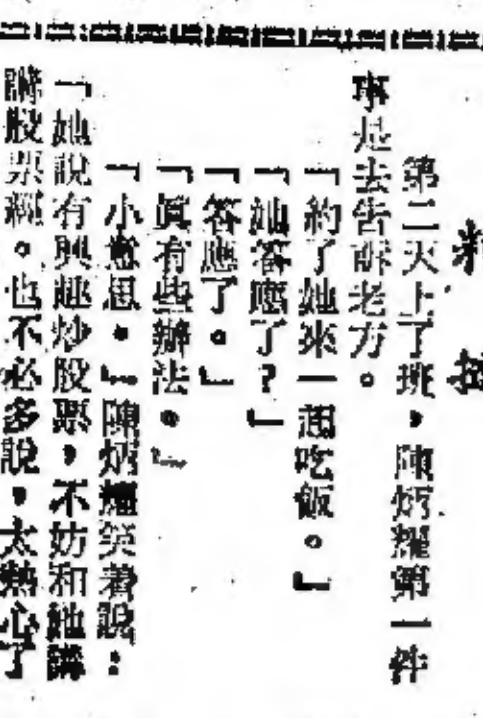 第二天上了班，陳炳耀第一件
事是去告訴老方。
「約了她來一起吃飯。」
「她答應了？」
「答應了。」
「眞有些辦法。」
「小意思。」陳炳耀笑着說：
「她說有興趣炒股票，不妨和她講
講股票經。也不必多說，太熱心了